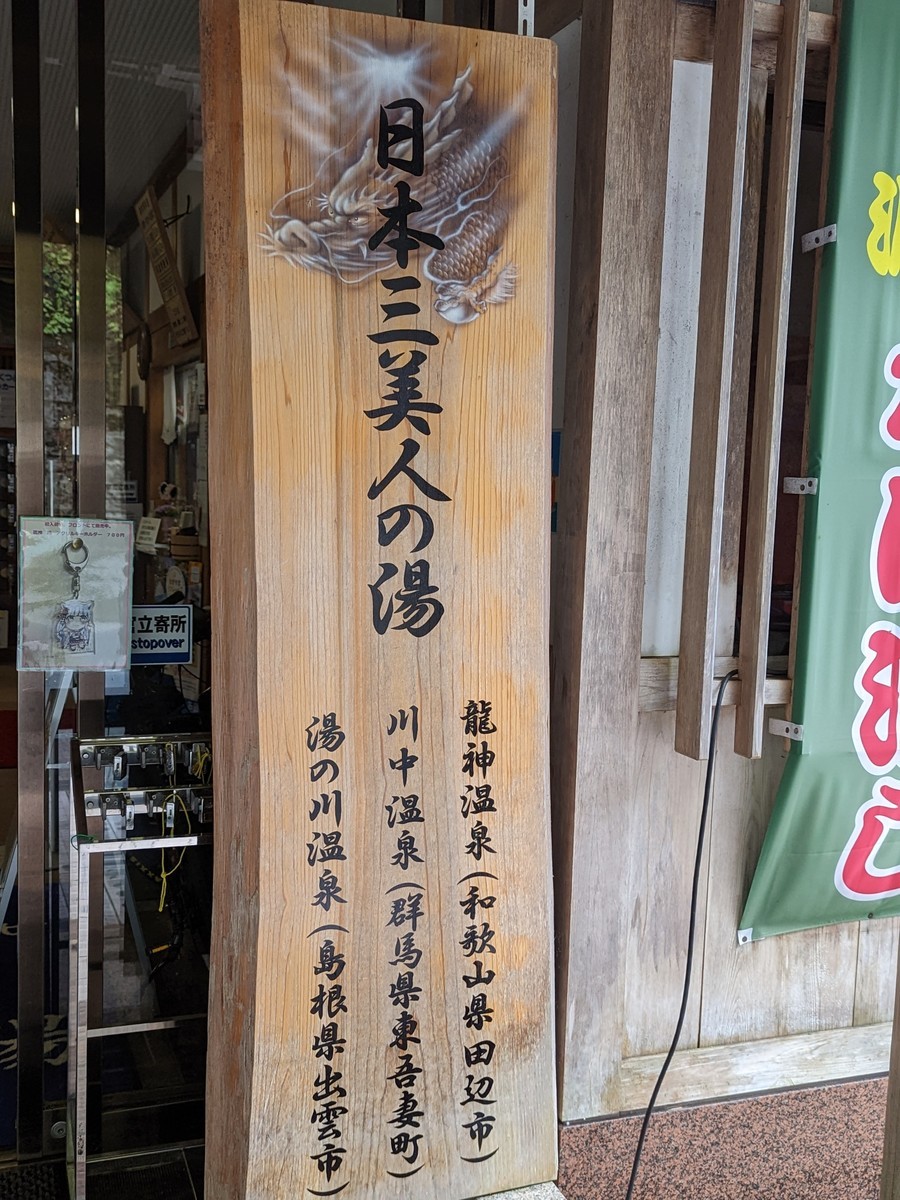 日本三美人の湯
龍神温泉(和歌山県田辺市)
川中温泉(群馬県東吾妻町)
湯の川温泉(島根県出雲市)
立寄所
stopover